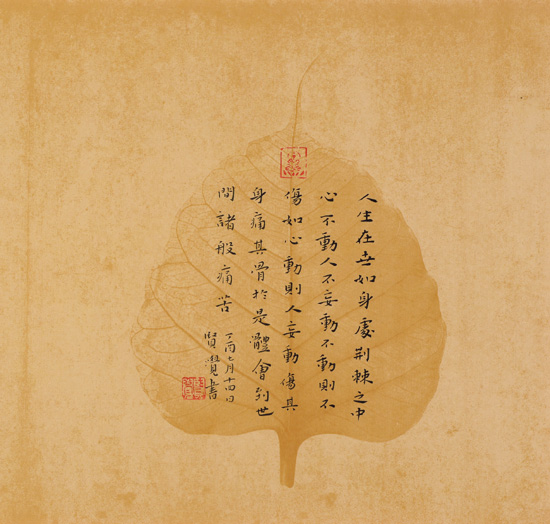 人生在世如身處荆棘之中
心不動人不妄動不動則不
傷如心動則人妄動傷其
身痛其骨於是體會到世
間諸般痛苦
丁酉七月十四日
賢覺書